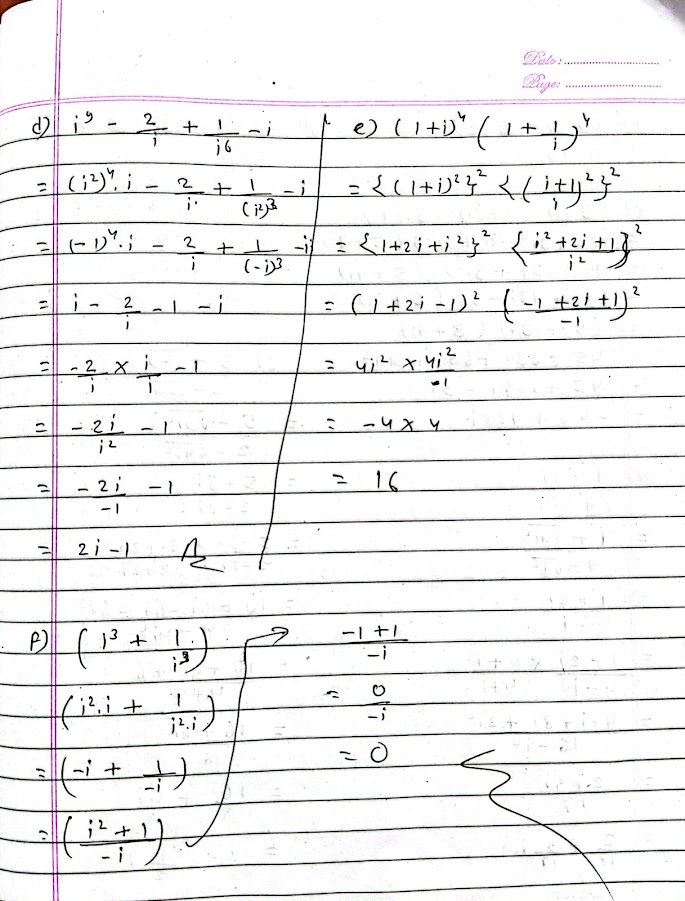 Date:
Page:
d) i⁹ - 2/i + 1/i6 - i
= (i²)⁴. i - 2/i + 1/(i²)³ - i
= (-1)⁴. i - 2/i + 1/(-i)³ - i
= i - 2/i - 1 - i
= -2/i × i/i - 1
= -2i/i² - 1
= -2i/-1 - 1
= 2i - 1
e) (1+i)⁴ (1 + 1/i)⁴
= {(1+i)²}² {(i+1/i)²}²
= {1+2i+i²}² {i²+2i+1/i²}²
= (1+2i-1)² (-1+2i+1/-1)²
= 4i² × 4i²/-1
= -4 × 4
= 16
f) (i³ + 1/i³)
(i².i + 1/i².i)
= (-i + 1/-i)
= (i²+1/-i)
-1+1/-i
= 0/-i
= 0